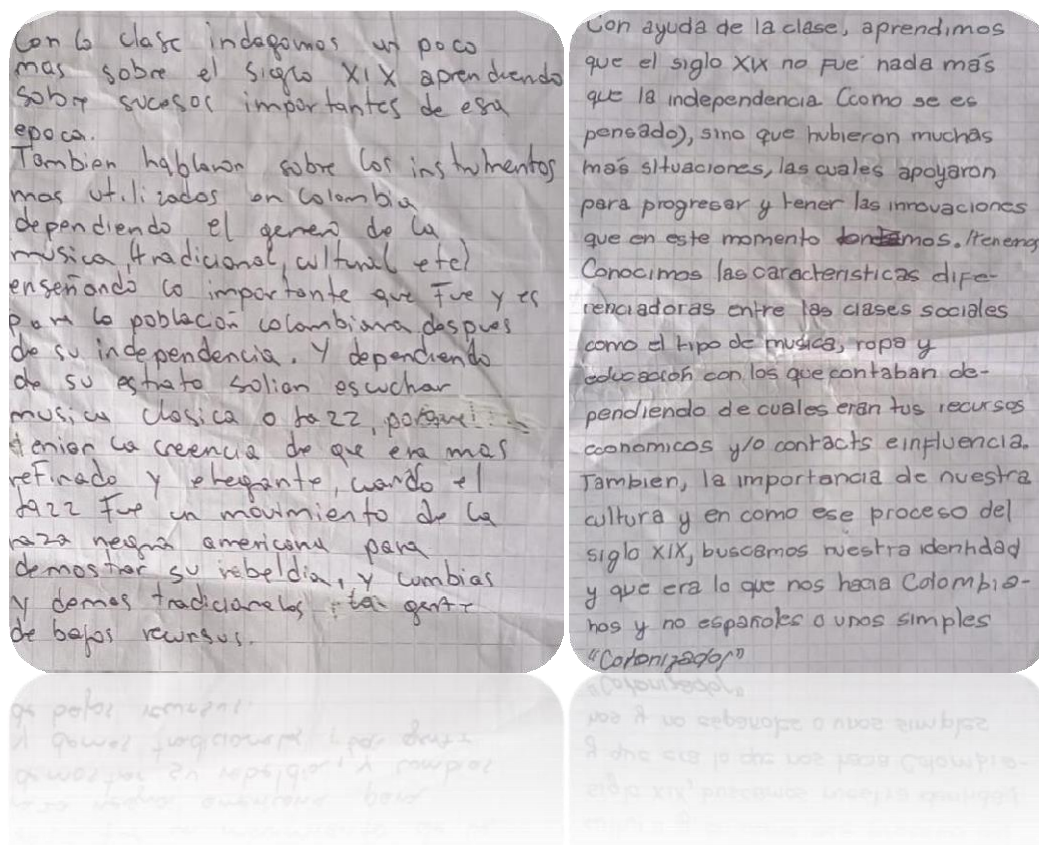 Con la clase indagamos un poco
mas sobre el siglo XIX aprendiendo
sobre sucesos importantes de esa
epoca.
Tambien hablaron sobre los instrumentos
mas utilizados en Colombia
dependiendo el genero de la
musica (tradicional, cultural etc)
enseñando lo importante que fue y es
para la poblacion colombiana despues
de su independencia. Y dependiendo
de su estrato solian escuchar
musica clasica o jazz, porque
tenian la creencia de que era mas
refinado y elegante, cuando el
jazz fue un movimiento de la
raza negra americana para
demostrar su rebeldia, y cumbias
y demas tradicionales la gente
de bajos recursus.
Con ayuda de la clase, aprendimos
que el siglo XIX no fue nada más
que la independencia (como se es
pensado), sino que hubieron muchas
más situaciones, las cuales apoyaron
para progresar y tener las innovaciones
que en este momento . /tenemos
Conocimos las caracteristicas dife-
renciadoras entre las clases sociales
como el tipo de musica, ropa y
educación con los que contaban de-
pendiendo de cuales eran tus recursos
economicos y/o contacts e influencia.
Tambien, la importancia de nuestra
cultura y en como ese proceso del
siglo XIX, buscamos nuestra identidad
y que era lo que nos hacia Colombia-
nos y no españoles o unos simples
"Colonizador"